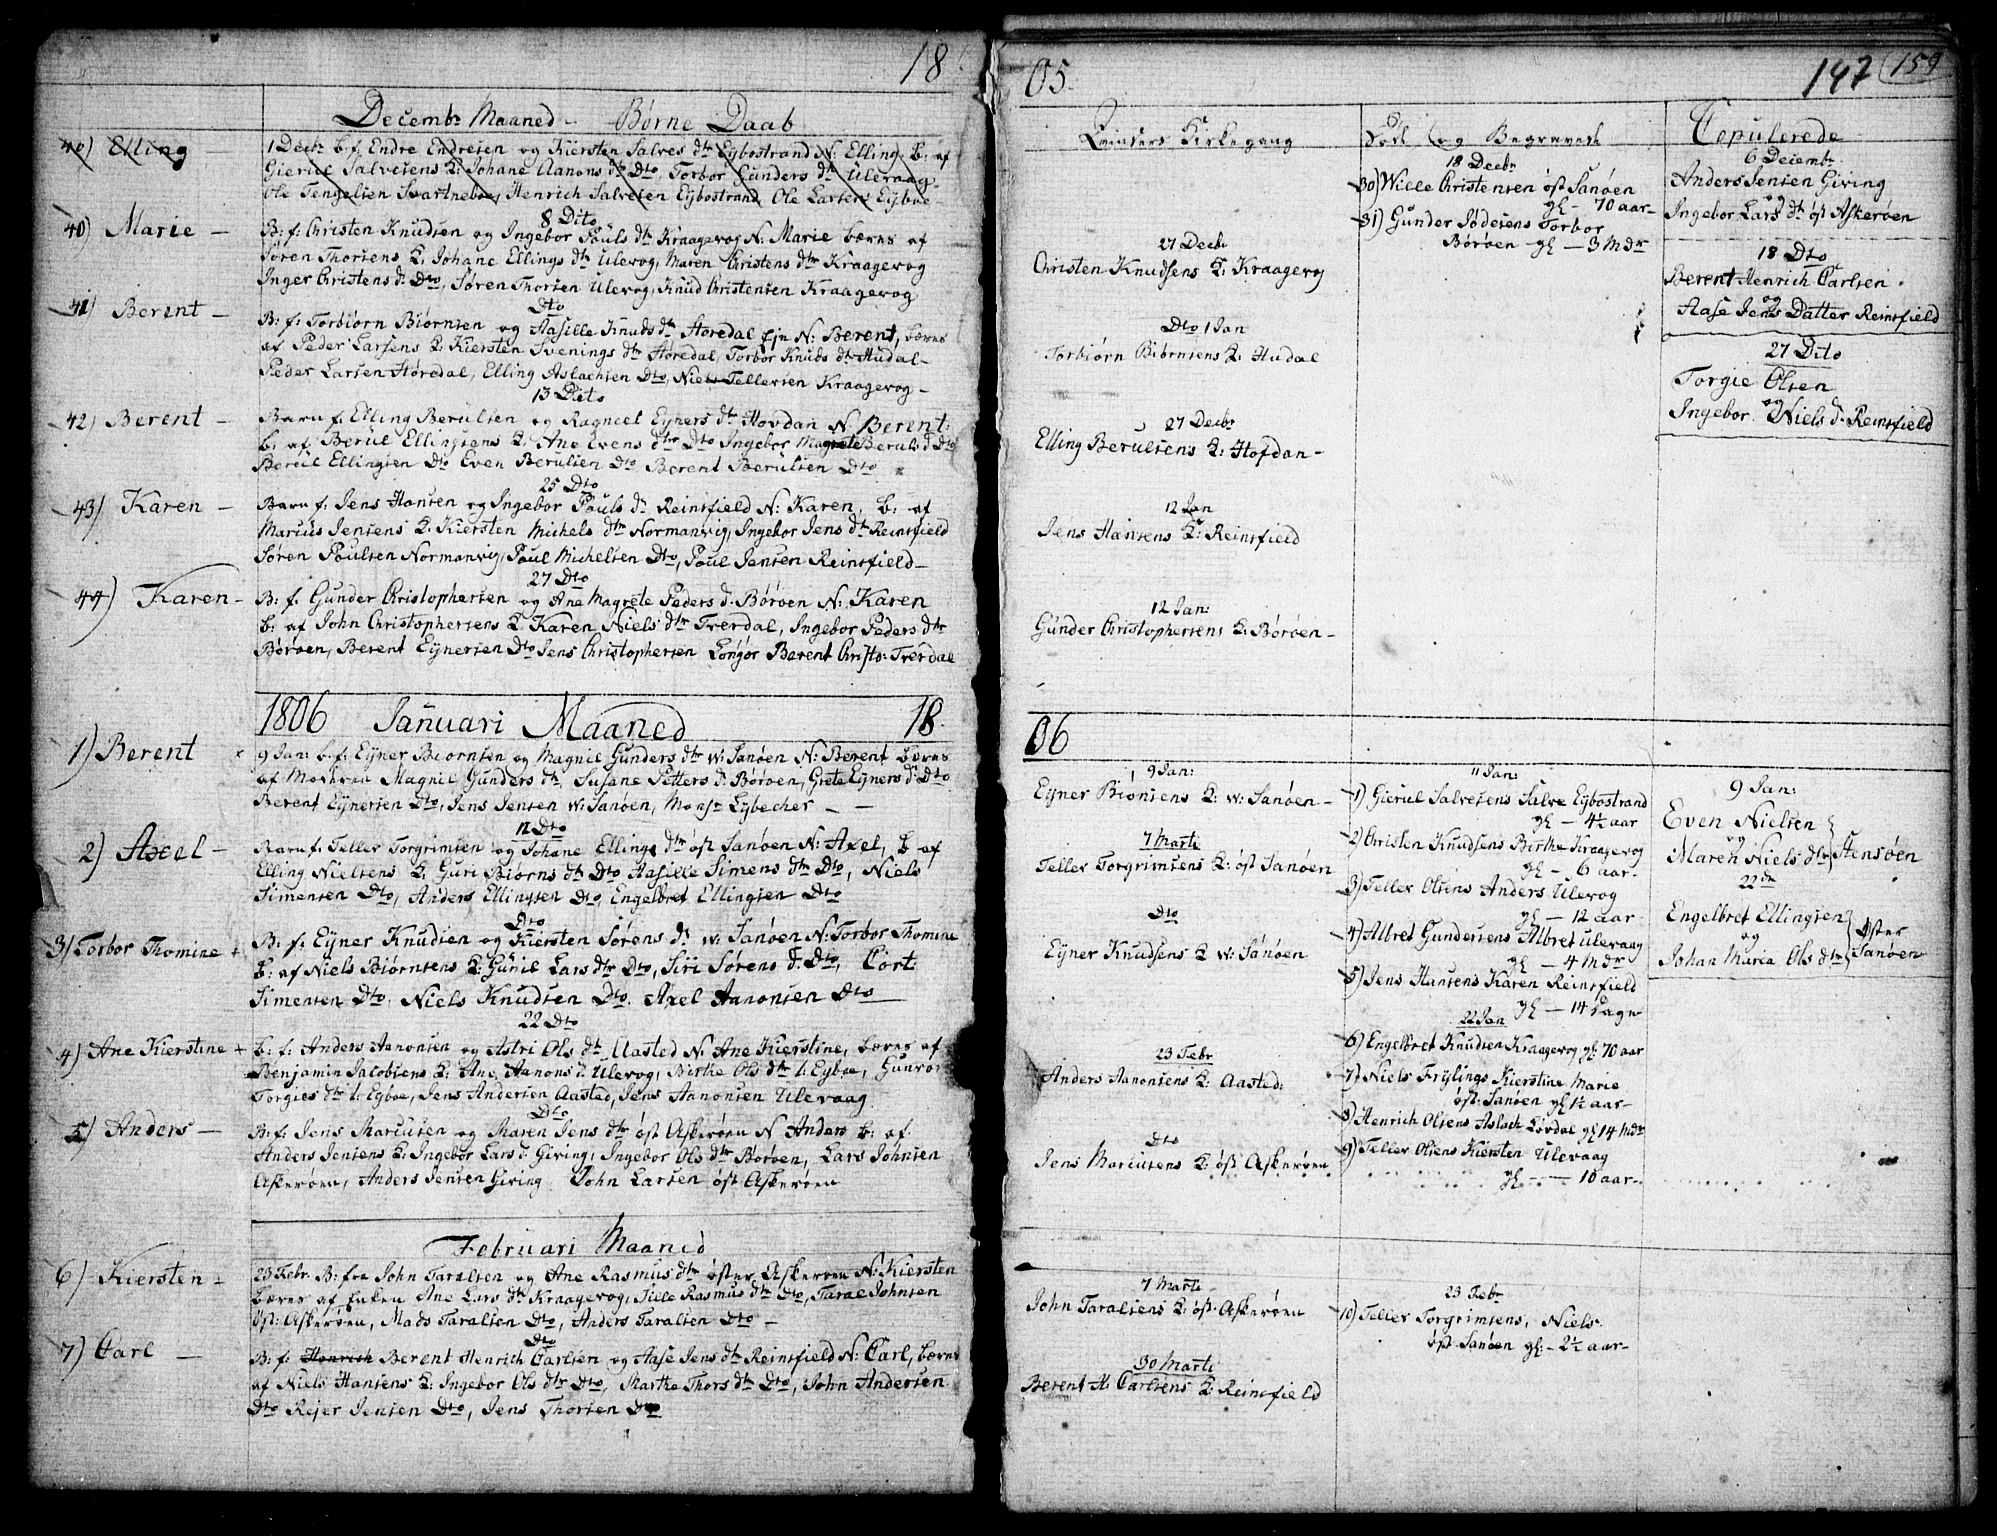 18
Decembr Maaned - Børne Daab
40) Elling -
1 Decbr b. f. Endre Endresen og Kiersten Salves dtr Eybostrand N: Elling. b. af
Gierul Salvesens K: Johane Aanons dtr Dto, Torbor Gunders dtr Ulevaag
Ole Tengelsen Svartneboe, Henrich Salvesen Eybostrand Ole Larsen Eyboe -
8 Dito
40) Marie -
B: f: Christen Knudsen og Ingebor Pouls dtr Kraagevog N: Marie bæres af
Søren Thorsens K. Johane Ellings dtr Ulevog, Maren Christens dtr Kraagevog
Inger Christens d. Dto, Søren Thorsen Ulevog, Knud Christensen Kraagevog
Dto
41) Berent -
B: f: Torbiørn Biørnsen og Aasille Knuds dtr Høredal Ejn N: Berent, bæres
af Peder Larsens K: Kiersten Svenings dtr Høredal, Torbor Knuds dtr Hudal -
Peder Larsen Høredal, Elling Aslachsen Dto, Niels Tellevsen Kraagevog -
13 Dito
42) Berent -
Barn f. Elling Berulsen og Ragneel Eyners dtr Hovdan N Berent:
b: af Berul Ellingsens K: Ane Evens dtr Dto Ingebor Magrete Beruls d Dto
Berul Ellingsen Dto Even Berulsen Dto Berent Berulsen Dto
25 Dto
43) Karen -
Barn f. Jens Hansen og Ingebor Pouls d. Reinsfield N: Karen, b: af
Marius Jensens K. Kiersten Michels dtr Normanvig, Ingebor Jens dtr Reinsfield
Søren Poulsen Normanvig, Poul Michelsen Dto, Poul Jensen Reinsfield -
27 Dto
44) Karen -
B: f. Gunder Christophersen og Ane Magrete Peders d. Børøen N: Karen
b: af John Christophersens K Karen Niels dtr Tverdal, Ingebor Peders dtr
Børøen, Berent Eynersen Dto Jens Christophersen Longør Berent Christo: Tverdal
1806 Januari Maaned 18
1) Berent
9 Jan: b. f: Eyner Biørnsen og Magnil Gunders dtr w: Sanøen N: Berent bæres
af Modren Magnil Gunders dtr, Susane Petters d. Børøen, Grete Eyners d: Dto
Berent Eynersen Dto, Jens Jensen w: Sanøen, Monsr Lybecher -
12 Dto
2) Axel -
Barn f. Teller Torgrimsen og Johane Ellings dtr øst Sanøen N: Axel, b af
Elling Nielsens K. Guri Biørns dtr Dto Aasille Simens dtr Dto, Niels
Simensen Dto, Anders Ellingsen Dto, Engelbret Ellingsen Dto
Dto
3) Torbor Thomine +
B. f: Eyner Knudsen og Kiersten Sørens dtr w: Sanøen N: Torbor Thomine
b: af Niels Biørnsens K: Gunil Lars dtr Dto, Siri Sørens d: Dto, Cort
Simensen Dto, Niels Knudsen Dto. Axel Aanonsen Dto
22 Dto
4) Ane Kierstine +
b: f: Anders Aanonsen og Astri Ols dtr Aasted N: Ane Kierstine, bæres af
Benjamin Jacobsens K: Ane Aanons d. Ulevog, Birthe Ols dtr l. Eyboe, Gunvor
Torgies dtr l. Egboe, Jens Andersen Aasted, Jens Aanonsen Ulevaag
Dto
5) Anders -
B: f: Jens Marcusen og Maren Jens dtr øst Askerøen N Anders b: af
Anders Jensens K: Ingebor Lars d. Giving, Ingebor Ols dtr Børøen, Lars Johnsen
Askerøen, Anders Jensen Giving John Larsen øst Askerøen
Februari Maaned
6) Kiersten -
23 Febr. B: fra John Taralsen og Ane Rasmus dtr øster Askerøen N: Kiersten
bæres af Enken Ane Lars dtr Kraagevog, Sille Rasmus dtr Dto, Tarae Johnsen
øst: Askerøen, Mads Taralsen Dto, Anders Taralsen Dto -
Dto
7) Carl -
B: f: Henrich Berent Henrich Carlsen og Aase Jens dtr Reinsfield N: Carl, bæres
af Niels Hansens K: Ingebor Ols dtr Dto, Marthe Thors dtr Dto, John Andersen
Dto Rejer Jensen Dto, Jens Thorsen Dto
05. 147 159
Qvinders Kirkegang
27 Decb:
Christen Knudsens K: Kraagevog
Dto 1 Jan
Torbiørn Biørnsens K: Hudal
27 Decbr
Elling Berulsens K: Hofdan -
12 Jan
Jens Hansens K: Reinsfield
12 Jan:
Gunder Christophersens K. Børøen -
Død og Begravede
18 Decbr
30) Wille Christensen øst Sanøen
gl - 70 aar -
31) Gunder Jødesens Torbor
Børøen gl - 3 Mdr
Copulerede
6 Decembr
Anders Jensen Giving
og
Ingebor Lars dtr øst Askerøen
18 Dto
Berent Henrich Carlsen
og
Aase Jens Datter Reinsfield
27 Dito
Torgie Olsen
og
Ingebor Niels d. Reinsfield
06
9 Jan:
Eyner Biønsens K: w: Sanøen -
7 Marti
Teller Torgrimsens K: øst Sanøen
Dto
Eyner Knudsens K w: Sanøen
23 Febr
Anders Aanonsens K: Aasted:
Dto
Jens Marcusens K: øst Askerøen
7 Marti
John Taralsens K: øst Askerøen
30 Marti
Berent H. Carlsens K: Reinsfield
11 Jan:
1) Gierul Salvesens Salve Eybostrand
gl - 4½ aar
2) Christen Knudsens Birthe Kraagevog
gl - 6 aar -
3) Teller Olsens Anders Ulevog
gl - 12 aar
4) Albret Gundersens Albret Ulevaag
gl - 4 Mdr
5) Jens Hansens Karen Reinsfield
gl - 14 Dage
22 Jan
6) Engelbret Knudsen Kraagevog gl: 70 aar
7) Niels Frylings Kierstine Marie
øst: Sanøen gl 1½ aar -
8) Henrich Olsens Aslach Løvdal gl 14 Mdr
9) Teller Olsens Kiersten Ulevaag
gl - 10 aar -
23 Febr
10) Teller Torgrimsens, Niels
øst Sanøen gl: - 2½ aar -
9 Jan:
Even Nielsen
og
Maren Niels dtr Stensøen
22de
Engelbret Ellingsen
og Øster Sanøen
Johan Maria Ols dtr